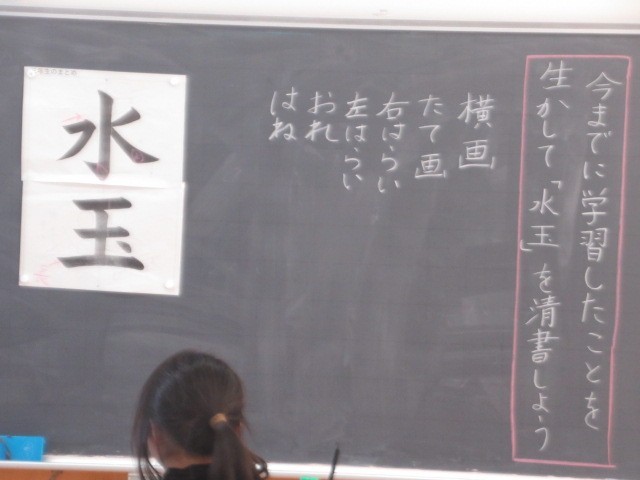 今までに学習したことを
生かして「水玉」を清書しよう
横画
たて画
右はらい
左はらい
おれ
はね
水玉